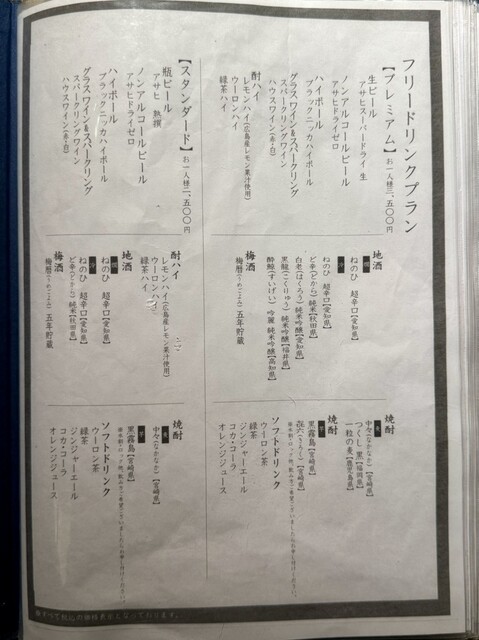 フリードリンクプラン
【プレミアム】お一人様三、五〇〇円
生ビール
アサヒスーパードライ 生
ノンアルコールビール
アサヒドライゼロ
ハイボール
ブラックニッカハイボール
グラスワイン&スパークリング
スパークリングワイン
ハウスワイン(赤・白)
酎ハイ
レモンハイ(広島産レモン果汁使用)
ウーロンハイ
緑茶ハイ
地酒
ねのひ 超辛口【愛知県】
ねのひ 超辛口【愛知県】
ど辛(どから) 純米【秋田県】
白老(はくろう) 純米吟醸【愛知県】
黒龍(こくりゅう) 純米吟醸【福井県】
酔鯨(すいげい) 吟麗 純米吟醸【高知県】
梅酒
梅暦(うめごよみ) 五年貯蔵
焼酎
中々(なかなか)【宮崎県】
つくし 黒【福岡県】
一粒の麦【鹿児島県】
黒霧島【宮崎県】
㐂六(きろく)【宮崎県】
ソフトドリンク
ウーロン茶
緑茶
ジンジャーエール
コカ・コーラ
オレンジジュース
【スタンダード】お一人様二、五〇〇円
瓶ビール
アサヒ 熟撰
ノンアルコールビール
アサヒドライゼロ
ハイボール
ブラックニッカハイボール
グラスワイン&スパークリング
スパークリングワイン
ハウスワイン(赤・白)
酎ハイ
レモンハイ(広島産レモン果汁使用)
ウーロンハイ
緑茶ハイ
地酒
ねのひ 超辛口【愛知県】
ねのひ 超辛口【愛知県】
ど辛(どから) 純米【秋田県】
梅酒
梅暦(うめごよみ) 五年貯蔵
焼酎
中々(なかなか)【宮崎県】
黒霧島【宮崎県】
ソフトドリンク
ウーロン茶
緑茶
ジンジャーエール
コカ・コーラ
オレンジジュース
※すべて税込の価格表示となっております。